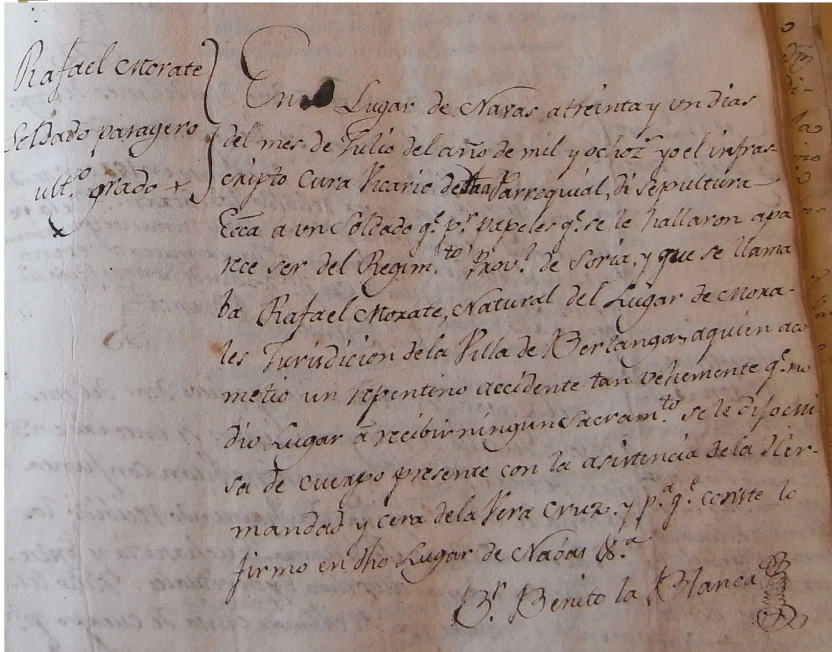 Rafael Morate
Soldado paragero
ult.º grado +
En Lugar de Navas a treinta y un dias
del mes de Julio del año de mil y ochoz.s yo el infras-
cripto Cura Vicario de Parroquial, di sepultura
Ecca a un Soldado q.e p.r papeles q.e se le hallaron apa
rece ser del Regim.to Prov.l de Soria, y que se llama
ba Rafael Morate, Natural del Lugar de Mora-
les Jurisdicion de la Villa de Berlanga, a quien aco
metió un repentino accidente tan vehemente q.e no
dio Lugar a recibir ningun Sacram.to se le dijo mi
sa de cuerpo presente con la asistencia de la Her-
mandad y cera de la Vera Cruz. y p.a q.e conste lo
firmo en dho Lugar de Nabas
B.r Benito la Blanca